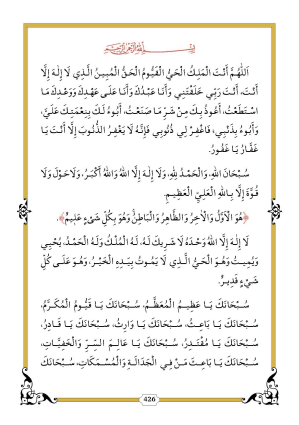 بِسْمِ اللهِ الرَّحْمٰنِ الرَّحِيمِ
اَللّٰهُمَّ أَنْتَ الْمَلِكُ الْحَيُّ الْقَيُّومُ الْحَقُّ الْمُبِينُ الَّذِي لَا إِلٰهَ إِلَّا
أَنْتَ، أَنْتَ رَبِّي خَلَقْتَنِي وَأَنَا عَبْدُكَ وَأَنَا عَلَى عَهْدِكَ وَوَعْدِكَ مَا
اسْتَطَعْتُ، أَعُوذُ بِكَ مِنْ شَرِّ مَا صَنَعْتُ، أَبُوءُ لَكَ بِنِعْمَتِكَ عَلَيَّ،
وَأَبُوءُ بِذَنْبِي، فَاغْفِرْ لِي ذُنُوبِي فَإِنَّهُ لَا يَغْفِرُ الذُّنُوبَ إِلَّا أَنْتَ يَا
غَفَّارُ يَا غَفُورُ.
سُبْحَانَ اللهِ، وَالْحَمْدُ لِلّٰهِ، وَلَا إِلٰهَ إِلَّا اللهُ وَاللهُ أَكْبَرُ، وَلَا حَوْلَ وَلَا
قُوَّةَ إِلَّا بِاللهِ الْعَلِيِّ الْعَظِيمِ.
﴿هُوَ الْأَوَّلُ وَالْآخِرُ وَالظَّاهِرُ وَالْبَاطِنُ وَهُوَ بِكُلِّ شَيْءٍ عَلِيمٌ﴾،
لَا إِلٰهَ إِلَّا اللهُ وَحْدَهُ لَا شَرِيكَ لَهُ، لَهُ الْمُلْكُ وَلَهُ الْحَمْدُ، يُحْيِي
وَيُمِيتُ وَهُوَ الْحَيُّ الَّذِي لَا يَمُوتُ بِيَدِهِ الْخَيْرُ، وَهُوَ عَلَى كُلِّ
شَيْءٍ قَدِيرٌ.
سُبْحَانَكَ يَا عَظِيمُ الْمُعَظَّمُ، سُبْحَانَكَ يَا قَيُّومُ الْمُكَرَّمُ،
سُبْحَانَكَ يَا بَاعِثُ، سُبْحَانَكَ يَا وَارِثُ، سُبْحَانَكَ يَا قَادِرُ،
سُبْحَانَكَ يَا مُقْتَدِرُ، سُبْحَانَكَ يَا عَالِمَ السِّرِّ وَالْخَفِيَّاتِ،
سُبْحَانَكَ يَا بَاعِثَ مَنْ فِي الْجَدَالَةِ وَالْمُسْمَكَاتِ، سُبْحَانَكَ
426